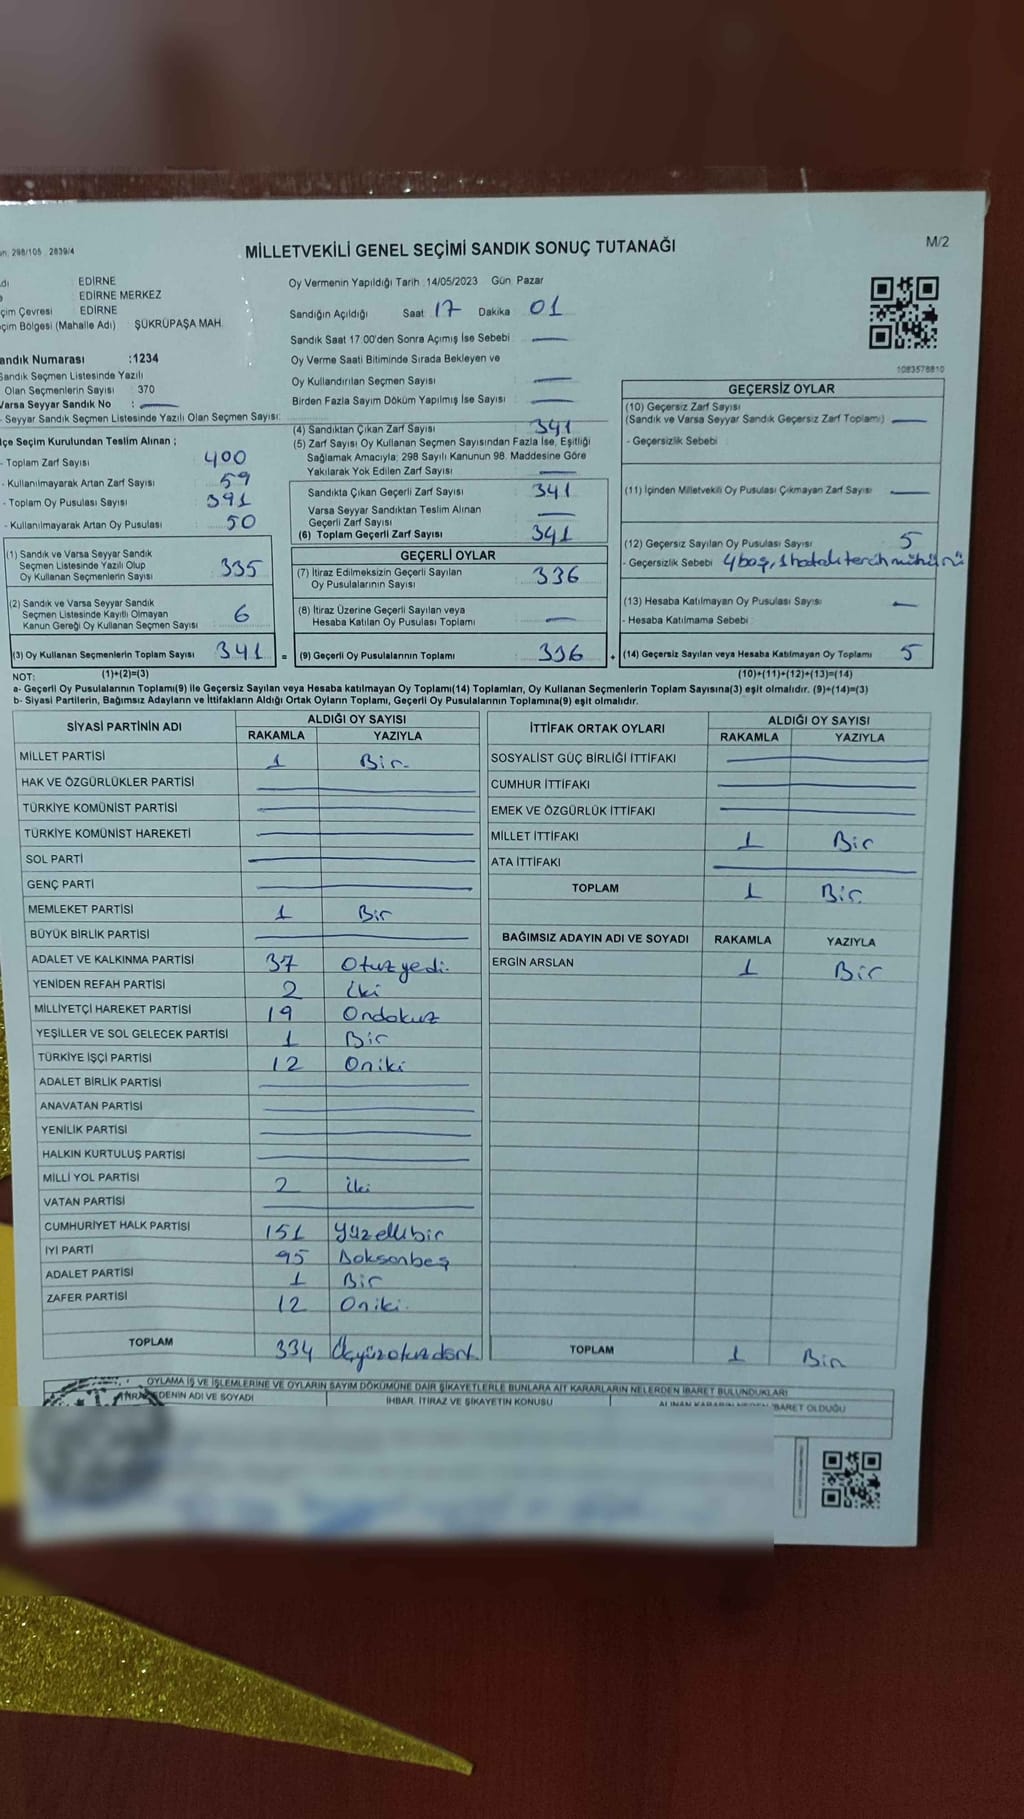 298/105 2839/4
MİLLETVEKİLİ GENEL SEÇİMİ SANDIK SONUÇ TUTANAĞI
M/2
EDİRNE
EDİRNE MERKEZ
çim Çevresi EDİRNE
çim Bölgesi (Mahalle Adı) ŞÜKRÜPAŞA MAH.
andık Numarası :1234
Sandık Seçmen Listesinde Yazılı
Olan Seçmenlerin Sayısı : 370
Varsa Seyyar Sandık No : —
- Seyyar Sandık Seçmen Listesinde Yazılı Olan Seçmen Sayısı:
Oy Vermenin Yapıldığı Tarih : 14/05/2023 Gün Pazar
Sandığın Açıldığı Saat 17 Dakika 01
Sandık Saat 17:00'den Sonra Açımış İse Sebebi —
Oy Verme Saati Bitiminde Sırada Bekleyen ve
Oy Kullandırılan Seçmen Sayısı —
Birden Fazla Sayım Döküm Yapılmış İse Sayısı —
1083578810
lçe Seçim Kurulundan Teslim Alınan ;
- Toplam Zarf Sayısı 400
- Kullanılmayarak Artan Zarf Sayısı 59
- Toplam Oy Pusulası Sayısı 391
- Kullanılmayarak Artan Oy Pusulası 50
(1) Sandık ve Varsa Seyyar Sandık
Seçmen Listesinde Yazılı Olup
Oy Kullanan Seçmenlerin Sayısı 335
(2) Sandık ve Varsa Seyyar Sandık
Seçmen Listesinde Kayıtlı Olmayan
Kanun Gereği Oy Kullanan Seçmen Sayısı 6
(3) Oy Kullanan Seçmenlerin Toplam Sayısı 341 =
(4) Sandıktan Çıkan Zarf Sayısı 341
(5) Zarf Sayısı Oy Kullanan Seçmen Sayısından Fazla İse, Eşitliği
Sağlamak Amacıyla, 298 Sayılı Kanunun 98. Maddesine Göre
Yakılarak Yok Edilen Zarf Sayısı —
Sandıkta Çıkan Geçerli Zarf Sayısı 341
Varsa Seyyar Sandıktan Teslim Alınan
Geçerli Zarf Sayısı —
(6) Toplam Geçerli Zarf Sayısı 341
GEÇERLİ OYLAR
(7) İtiraz Edilmeksizin Geçerli Sayılan
Oy Pusulalarının Sayısı 336
(8) İtiraz Üzerine Geçerli Sayılan veya
Hesaba Katılan Oy Pusulası Toplamı —
(9) Geçerli Oy Pusulalarının Toplamı 336 +
GEÇERSİZ OYLAR
(10) Geçersiz Zarf Sayısı
(Sandık ve Varsa Seyyar Sandık Geçersiz Zarf Toplamı) —
- Geçersizlik Sebebi
(11) İçinden Milletvekili Oy Pusulası Çıkmayan Zarf Sayısı —
(12) Geçersiz Sayılan Oy Pusulası Sayısı 5
- Geçersizlik Sebebi 4 boş, 1 hatalı tercih mühürü
(13) Hesaba Katılmayan Oy Pusulası Sayısı —
- Hesaba Katılmama Sebebi
(14) Geçersiz Sayılan veya Hesaba Katılmayan Oy Toplamı 5
NOT: (1)+(2)=(3) (10)+(11)+(12)+(13)=(14)
a- Geçerli Oy Pusulalarının Toplamı(9) ile Geçersiz Sayılan veya Hesaba katılmayan Oy Toplamı(14) Toplamları, Oy Kullanan Seçmenlerin Toplam Sayısına(3) eşit olmalıdır. (9)+(14)=(3)
b- Siyasi Partilerin, Bağımsız Adayların ve İttifakların Aldığı Ortak Oyların Toplamı, Geçerli Oy Pusulalarının Toplamına(9) eşit olmalıdır.
SİYASİ PARTİNİN ADI ALDIĞI OY SAYISI
RAKAMLA YAZIYLA
MİLLET PARTİSİ 1 Bir
HAK VE ÖZGÜRLÜKLER PARTİSİ —
TÜRKİYE KOMÜNİST PARTİSİ —
TÜRKİYE KOMÜNİST HAREKETİ —
SOL PARTİ —
GENÇ PARTİ —
MEMLEKET PARTİSİ 1 Bir
BÜYÜK BİRLİK PARTİSİ —
ADALET VE KALKINMA PARTİSİ 37 Otuzyedi.
YENİDEN REFAH PARTİSİ 2 İki
MİLLİYETÇİ HAREKET PARTİSİ 19 Ondokuz
YEŞİLLER VE SOL GELECEK PARTİSİ 1 Bir
TÜRKİYE İŞÇİ PARTİSİ 12 Oniki
ADALET BİRLİK PARTİSİ —
ANAVATAN PARTİSİ —
YENİLİK PARTİSİ —
HALKIN KURTULUŞ PARTİSİ —
MİLLİ YOL PARTİSİ 2 iki
VATAN PARTİSİ —
CUMHURİYET HALK PARTİSİ 151 Yüzellibir
İYİ PARTİ 95 Doksanbeş
ADALET PARTİSİ 1 Bir
ZAFER PARTİSİ 12 Oniki.
TOPLAM 334 Üçyüzotuzdört
İTTİFAK ORTAK OYLARI ALDIĞI OY SAYISI
RAKAMLA YAZIYLA
SOSYALİST GÜÇ BİRLİĞİ İTTİFAKI —
CUMHUR İTTİFAKI —
EMEK VE ÖZGÜRLÜK İTTİFAKI —
MİLLET İTTİFAKI 1 Bir
ATA İTTİFAKI —
TOPLAM 1 Bir.
BAĞIMSIZ ADAYIN ADI VE SOYADI RAKAMLA YAZIYLA
ERGİN ARSLAN 1 Bir
TOPLAM 1 Bir
OYLAMA İŞ VE İŞLEMLERİNE VE OYLARIN SAYIM DÖKÜMÜNE DAİR ŞİKAYETLERLE BUNLARA AİT KARARLARIN NELERDEN İBARET BULUNDUKLARI
EDENİN ADI VE SOYADI İHBAR, İTİRAZ VE ŞİKAYETİN KONUSU İBARET OLDUĞU